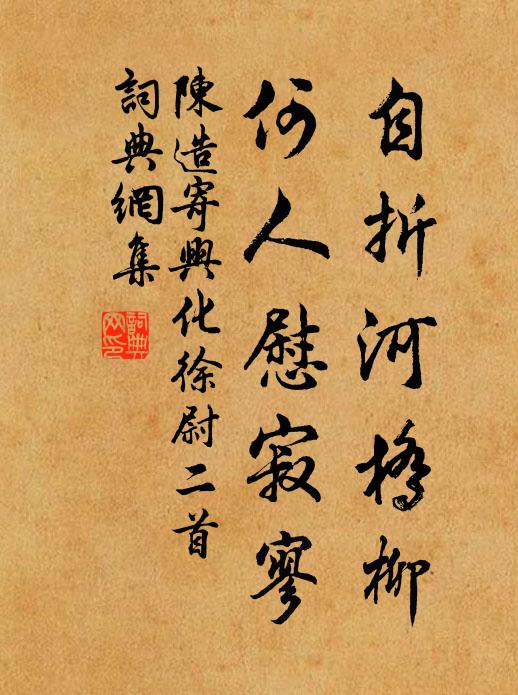 自折河橋柳
何人慰寂寥
陳造寄興化徐尉二首
詞典網集
詞典網印